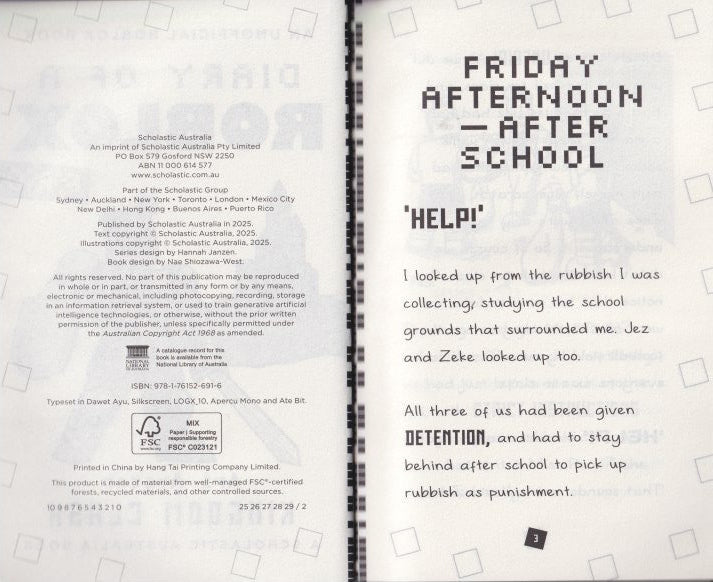 Scholastic Australia
An imprint of Scholastic Australia Pty Limited
PO Box 579 Gosford NSW 2250
ABN 11 000 614 577
www.scholastic.com.au
Part of the Scholastic Group
Sydney • Auckland • New York • Toronto • London • Mexico City
New Delhi • Hong Kong • Buenos Aires • Puerto Rico
Published by Scholastic Australia in 2025.
Text copyright © Scholastic Australia, 2025.
Illustrations copyright © Scholastic Australia, 2025.
Series design by Hannah Janzen.
Book design by Nae Shiozawa-West.
All rights reserved. No part of this publication may be reproduced
in whole or in part, or transmitted in any form or by any means,
electronic or mechanical, including photocopying, recording, storage
in an information retrieval system, or used to train generative artificial
intelligence technologies, or otherwise, without the prior written
permission of the publisher, unless specifically permitted under
the Australian Copyright Act 1968 as amended.
NATIONAL
LIBRARY
OF AUSTRALIA
A catalogue record for this
book is available from the
National Library of Australia
ISBN: 978-1-76152-691-6
Typeset in Dawet Ayu, Silkscreen, LOGX_10, Apercu Mono and Ate Bit.
FSC
www.fsc.org
MIX
Paper | Supporting
responsible forestry
FSC® C023121
Printed in China by Hang Tai Printing Company Limited.
This product is made of material from well-managed FSC®-certified
forests, recycled materials, and other controlled sources.
10 9 8 7 6 5 4 3 2 1 0
25 26 27 28 29 / 2
FRIDAY
AFTERNOON
—AFTER
SCHOOL
'HELP!'
I looked up from the rubbish I was
collecting, studying the school
grounds that surrounded me. Jez
and Zeke looked up too.
All three of us had been given
DETENTION, and had to stay
behind after school to pick up
rubbish as punishment.
3